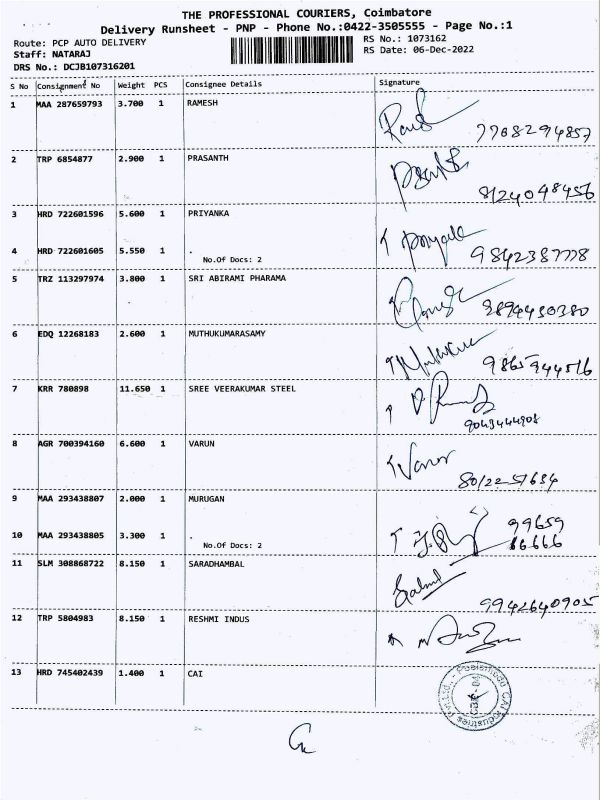 THE PROFESSIONAL COURIERS, Coimbatore
Delivery Runsheet - PNP - Phone No.:0422-3505555 - Page No.:1
Route: PCP AUTO DELIVERY
RS No.: 1073162
Staff: NATARAJ
RS Date: 06-Dec-2022
DRS No.: DCJB107316201
S No Consignment No Weight PCS Consignee Details Signature
1 MAA 287659793 3.700 1 RAMESH
7708294857
2 TRP 6854877 2.900 1 PRASANTH
8124048456
3 HRD 722601596 5.600 1 PRIYANKA
4 HRD 722601605 5.550 1 .
No.Of Docs: 2
9842387778
5 TRZ 113297974 3.800 1 SRI ABIRAMI PHARAMA
9894430380
6 EDQ 12268183 2.600 1 MUTHUKUMARASAMY
9865944516
7 KRR 780898 11.650 1 SREE VEERAKUMAR STEEL
9043444908
8 AGR 700394160 6.600 1 VARUN
9 MAA 293438807 2.000 1 MURUGAN
99659
10 MAA 293438805 3.300 1 .
No.Of Docs: 2
66666
11 SLM 308868722 8.150 1 SARADHAMBAL
9942640905
12 TRP 5804983 8.150 1 RESHMI INDUS
13 HRD 745402439 1.400 1 CAI
CAI Industries Pvt.Ltd.